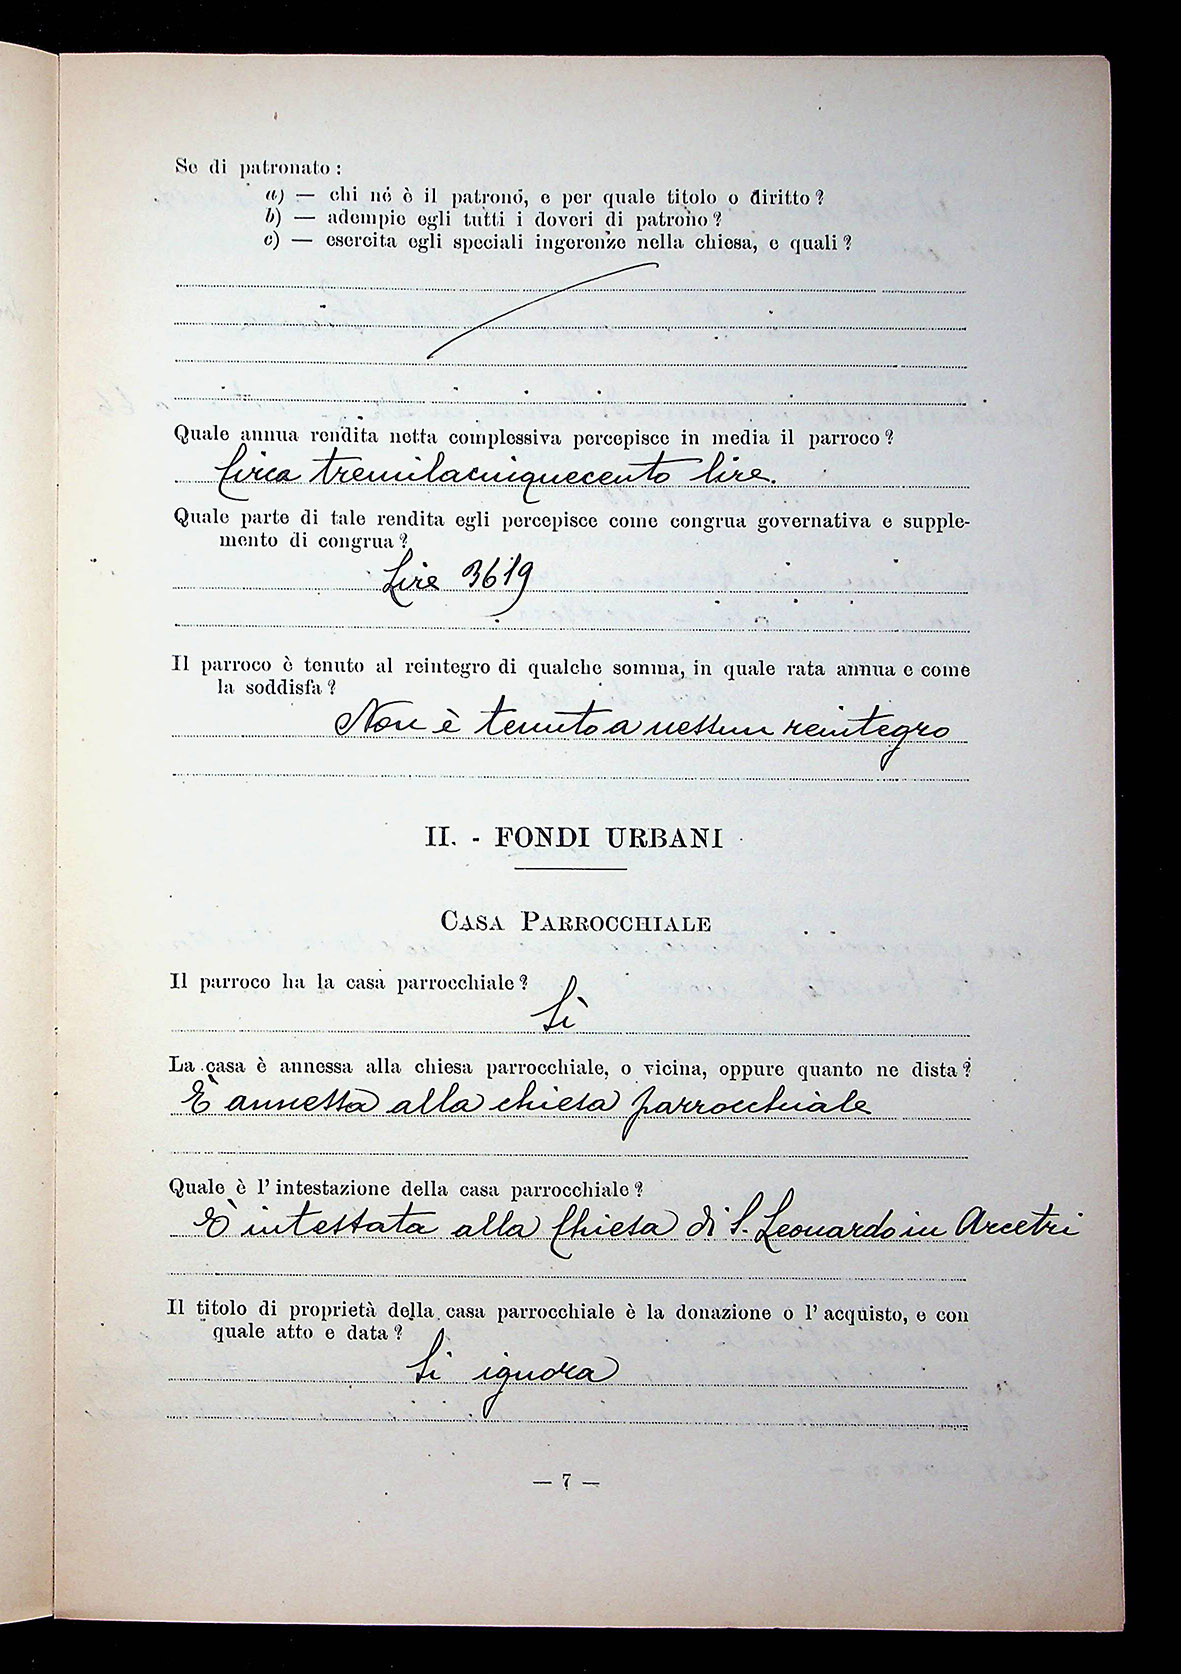 Se di patronato :
a) — chi né è il patronó, e per quale titolo o diritto ?
b) — adempie egli tutti i doveri di patrono ?
c) — esercita egli speciali ingerenze nella chiesa, e quali ?
Quale annua rendita netta complessiva percepisce in media il parroco ?
Circa tremilacinquecento lire.
Quale parte di tale rendita egli percepisce come congrua governativa e supple-
mento di congrua ?
Lire 3619
Il parroco è tenuto al reintegro di qualche somma, in quale rata annua e come
la soddisfa ?
Non è tenuto a nessun reintegro
II. - FONDI URBANI
CASA PARROCCHIALE
Il parroco ha la casa parrocchiale ?
Sì
La casa è annessa alla chiesa parrocchiale, o vicina, oppure quanto ne dista ?
È annessa alla chiesa parrocchiale
Quale è l' intestazione della casa parrocchiale ?
È intestata alla Chiesa di S. Leonardo in Arcetri
Il titolo di proprietà della casa parrocchiale è la donazione o l' acquisto, e con
quale atto e data ?
Si ignora
— 7 —